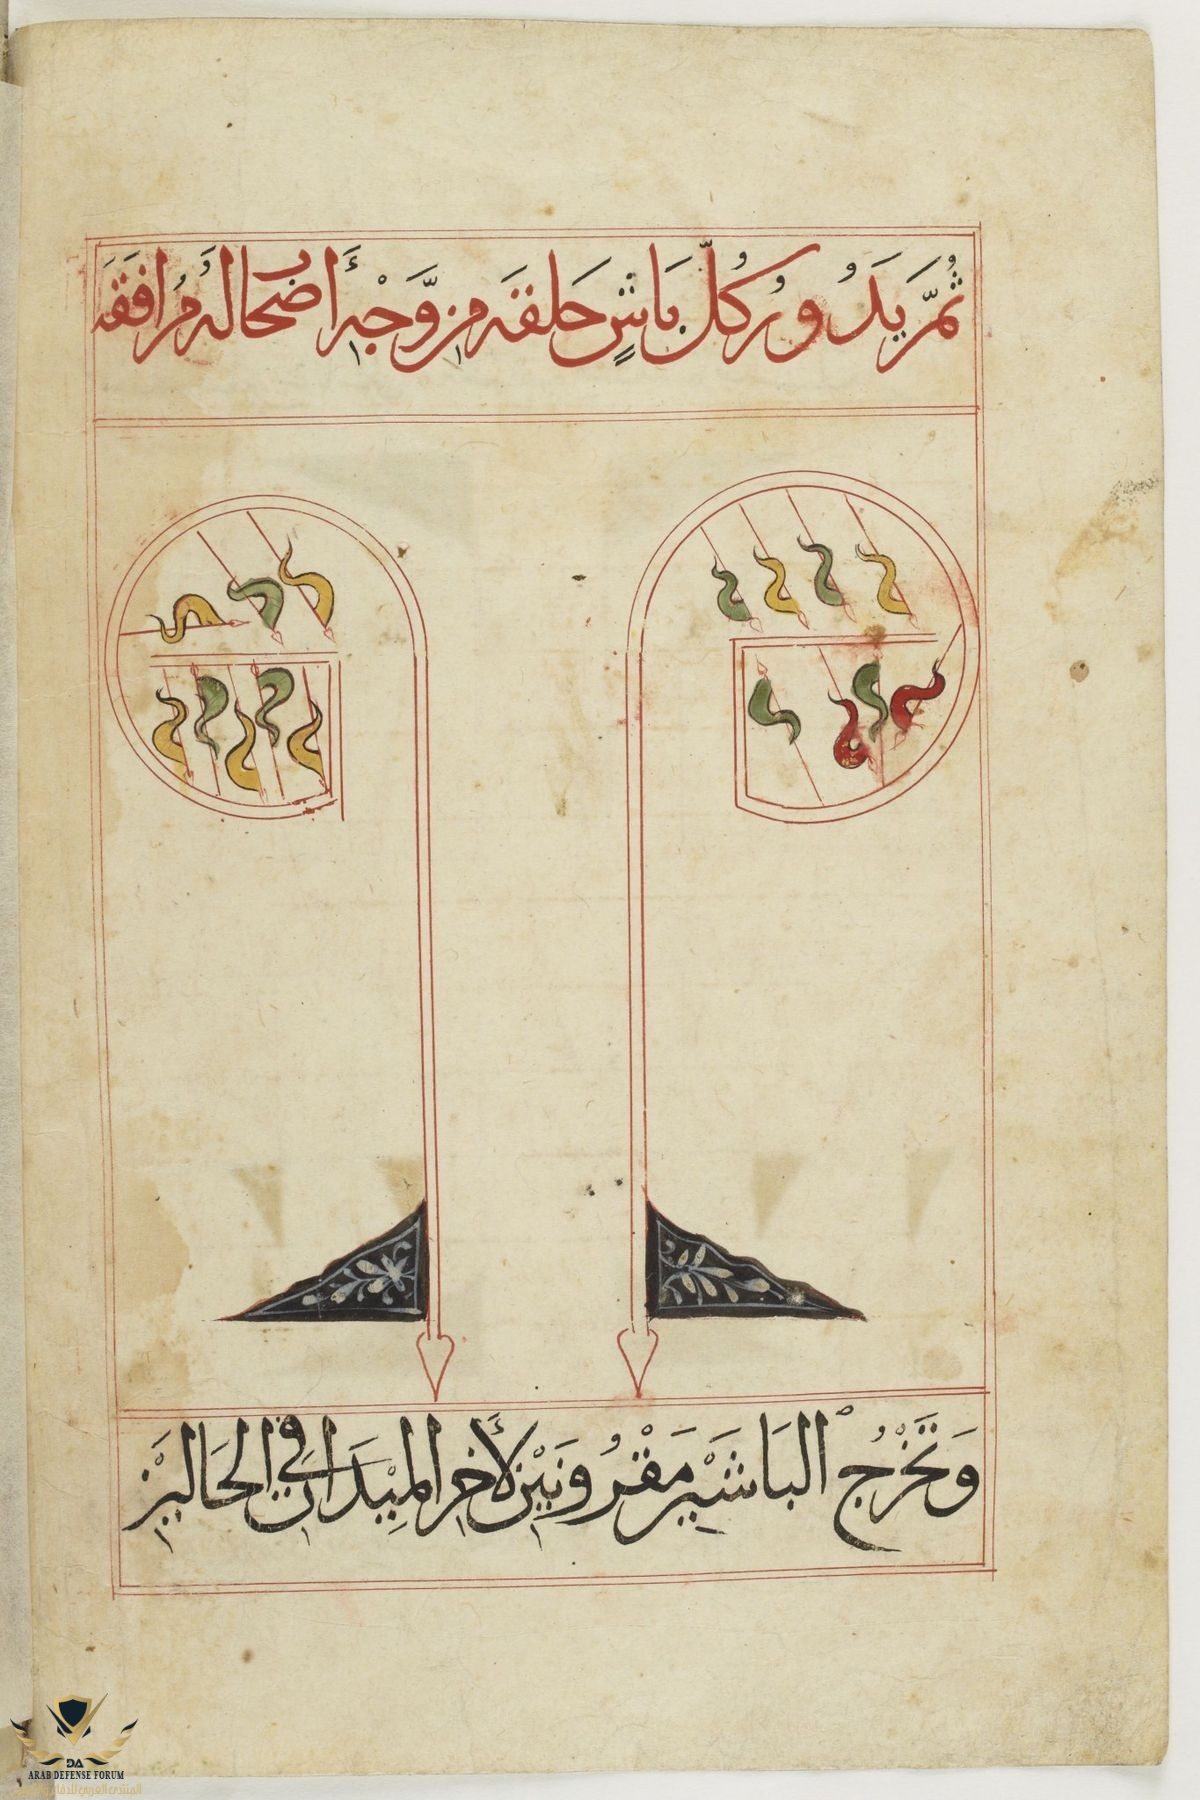 ثُمَّ يَدُورُ كُلّ بَاشٍ حَلقَه مِن وَّجْهِ أَصْحَابِ لَهُ مُرَافَقَهَ
وَتَخْرُجْ البَاشَيْنِ مَقْرُونَيْنِ لأَخِرِ المِيْدَانِ فِي الحَالَيْنِ
DA
ARAB DEFENSE FORUM
المنتدى العربي للدفاع